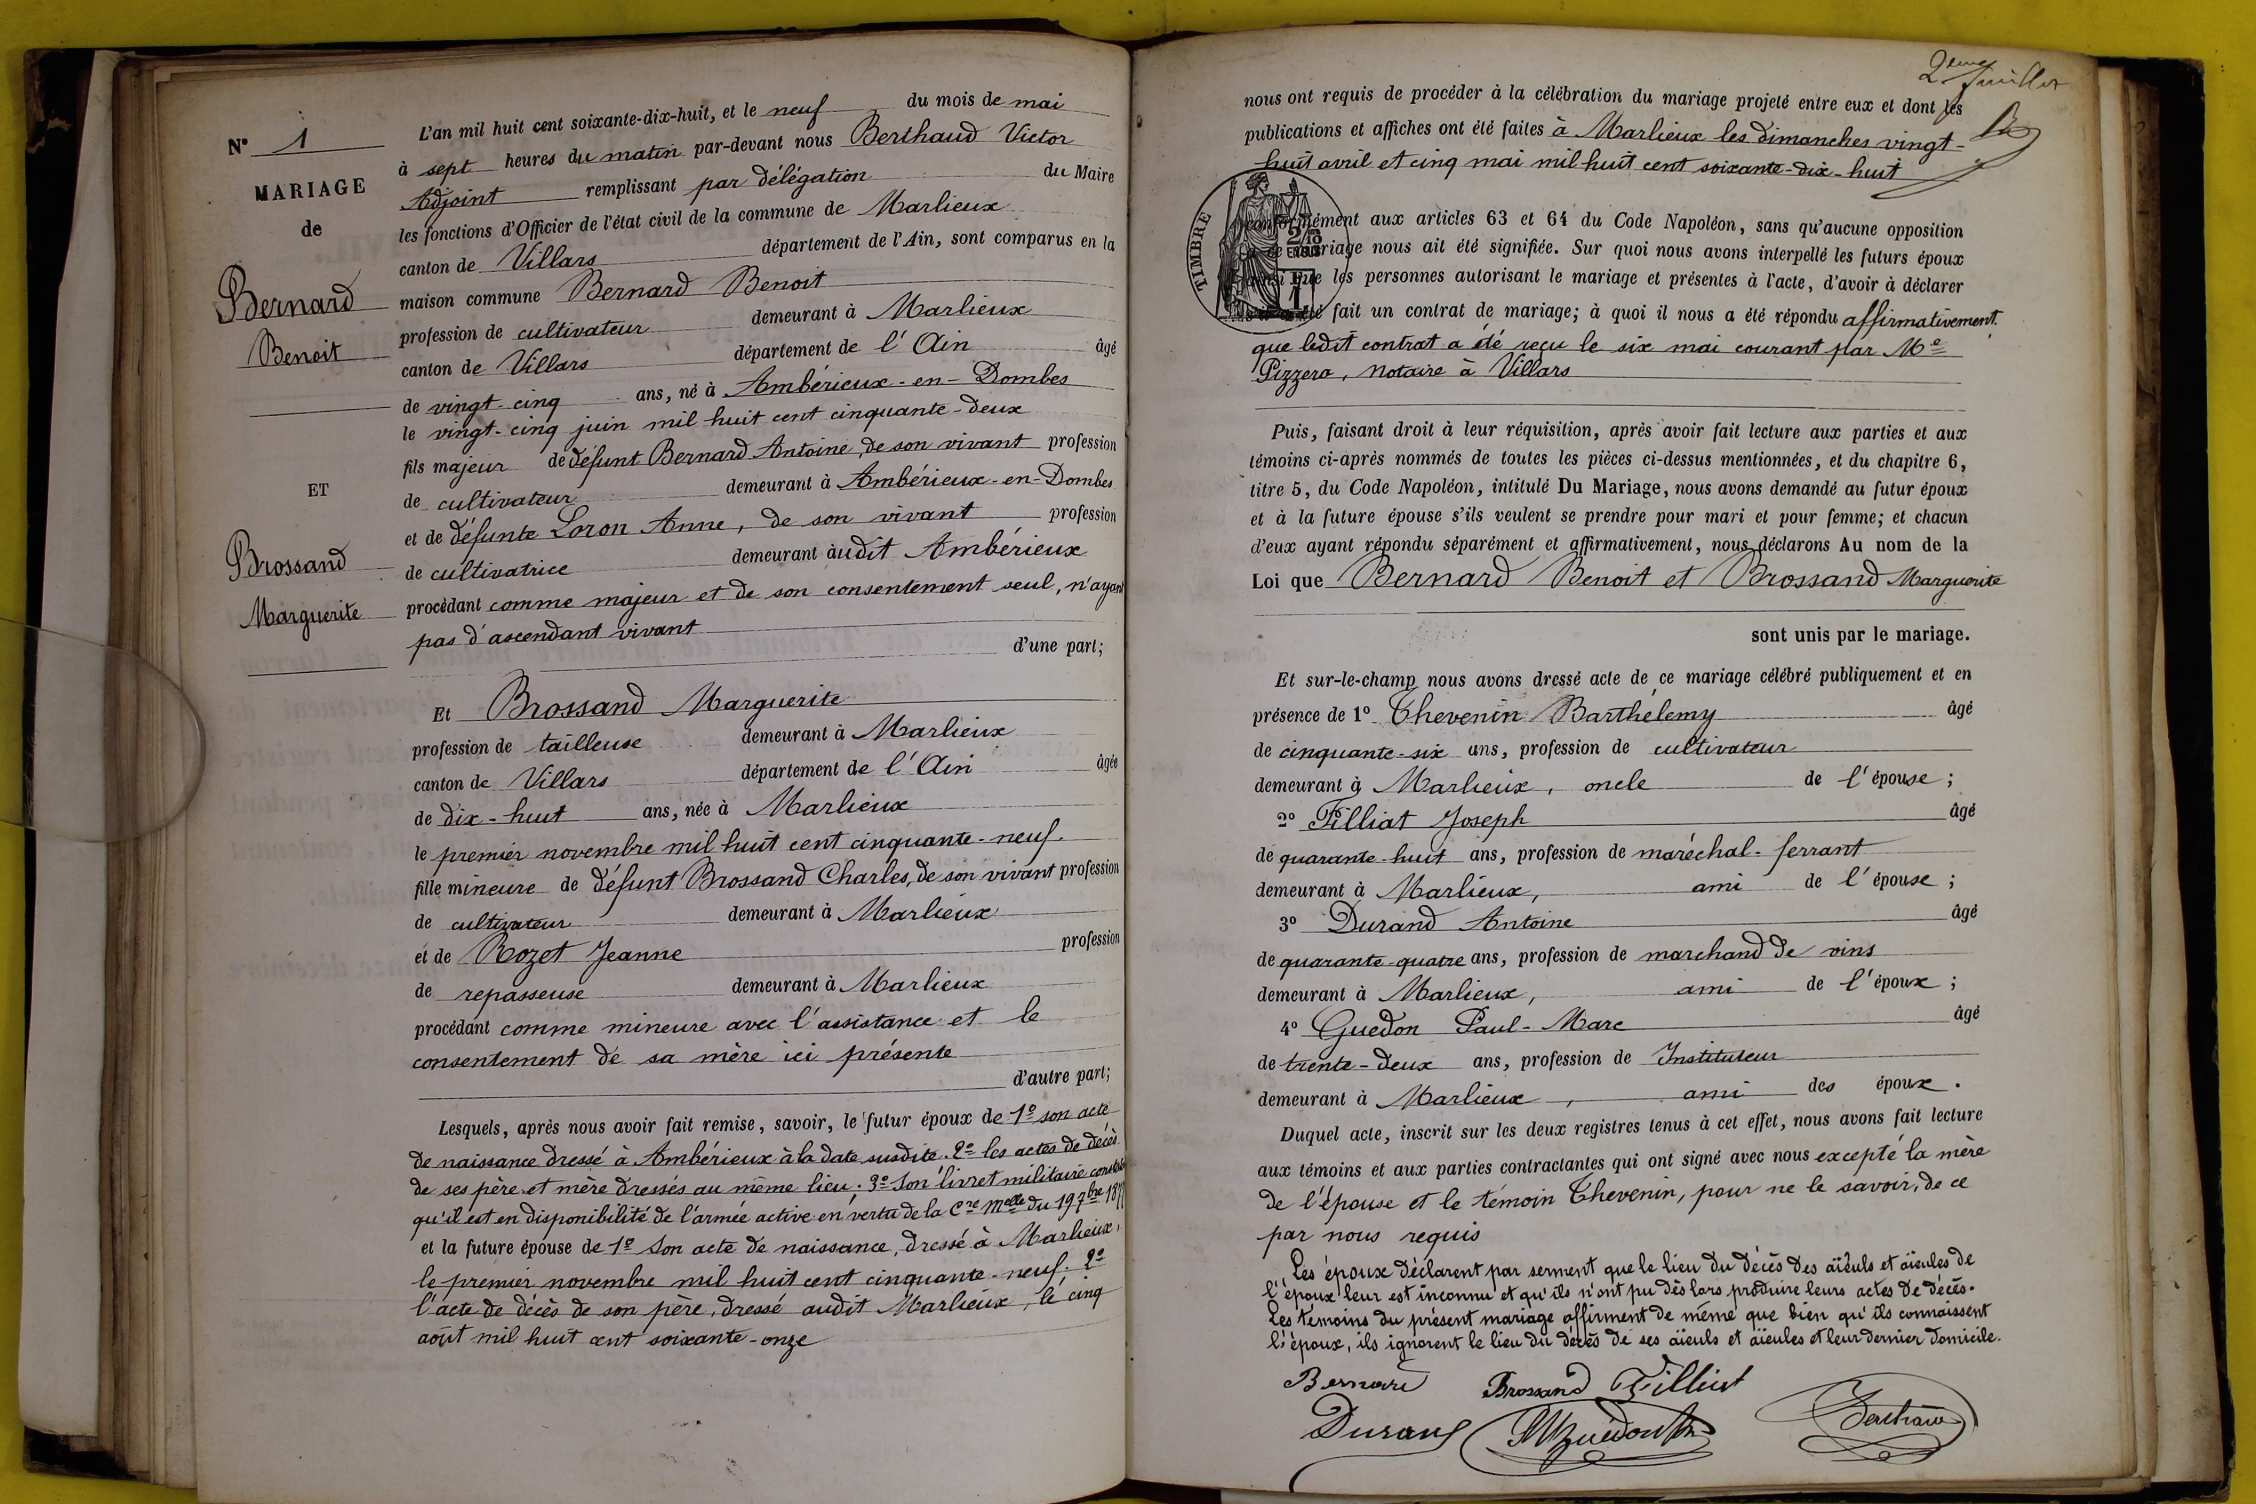 N° 1
MARIAGE
de
Bernard
Benoit
ET
Brossand
Marguerite
L'an mil huit cent soixante-dix-huit, et le neuf du mois de mai
à sept heures du matin par-devant nous Berthaud Victor
Adjoint remplissant par délégation du Maire
les fonctions d'Officier de l'état civil de la commune de Marlieux
canton de Villars département de l'Ain, sont comparus en la
maison commune Bernard Benoit
profession de cultivateur demeurant à Marlieux
canton de Villars département de l'Ain âgé
de vingt-cinq ans, né à Ambérieux-en-Dombes
le vingt-cinq juin mil huit cent cinquante-deux
fils majeur de défunt Bernard Antoine, de son vivant profession
de cultivateur demeurant à Ambérieux-en-Dombes
et de défunte Loron Anne, de son vivant profession
de cultivatrice demeurant àudit Ambérieux
procédant comme majeur et de son consentement seul, n'ayant
pas d'ascendant vivant
d'une part;
Et Brossand Marguerite
profession de tailleuse demeurant à Marlieux
canton de Villars département de l'Ain âgée
de dix-huit ans, née à Marlieux
le premier novembre mil huit cent cinquante-neuf.
fille mineure de défunt Brossand Charles, de son vivant profession
de cultivateur demeurant à Marlieux
et de Rozet Jeanne profession
de repasseuse demeurant à Marlieux
procédant comme mineure avec l'assistance et le
consentement de sa mère ici présente
d'autre part;
Lesquels, après nous avoir fait remise, savoir, le futur époux de 1° son acte
de naissance dressé à Ambérieux à la date susdite. 2° les actes de décès
de ses père et mère dressés au même lieu. 3° Son livret militaire constatant
qu'il est en disponibilité de l'armée active en vertu de la Cre Melle du 19 7bre 1877
et la future épouse de 1° Son acte de naissance, dressé à Marlieux,
le premier novembre mil huit cent cinquante-neuf. 2°
l'acte de décès de son père, dressé audit Marlieux, le cinq
août mil huit cent soixante-onze
2eme feuillet
nous ont requis de procéder à la célébration du mariage projeté entre eux et dont les
publications et affiches ont été faites à Marlieux les dimanches vingt-
huit avril et cinq mai mil huit cent soixante-dix-huit
TIMBRE
conformément aux articles 63 et 64 du Code Napoléon, sans qu'aucune opposition
mariage nous ait été signifiée. Sur quoi nous avons interpellé les futurs époux
ainsi que les personnes autorisant le mariage et présentes à l'acte, d'avoir à déclarer
été fait un contrat de mariage; à quoi il nous a été répondu affirmativement.
que ledit contrat a été reçu le six mai courant par Me
Pizzera, Notaire à Villars
Puis, faisant droit à leur réquisition, après avoir fait lecture aux parties et aux
témoins ci-après nommés de toutes les pièces ci-dessus mentionnées, et du chapitre 6,
titre 5, du Code Napoléon, intitulé Du Mariage, nous avons demandé au futur époux
et à la future épouse s'ils veulent se prendre pour mari et pour femme; et chacun
d'eux ayant répondu séparément et affirmativement, nous déclarons Au nom de la
Loi que Bernard Benoit et Brossand Marguerite
sont unis par le mariage.
Et sur-le-champ nous avons dressé acte de ce mariage célébré publiquement et en
présence de 1° Thevenin Barthélemy âgé
de cinquante-six ans, profession de cultivateur
demeurant à Marlieux, oncle de l'épouse;
2° Filliat Joseph âgé
de quarante-huit ans, profession de maréchal-ferrant
demeurant à Marlieux, ami de l'épouse;
3° Durand Antoine âgé
de quarante-quatre ans, profession de marchand de vins
demeurant à Marlieux, ami de l'époux;
4° Guedon Paul-Marc âgé
de trente-deux ans, profession de Instituteur
demeurant à Marlieux, ami des époux.
Duquel acte, inscrit sur les deux registres tenus à cet effet, nous avons fait lecture
aux témoins et aux parties contractantes qui ont signé avec nous excepté la mère
de l'épouse et le témoin Thevenin, pour ne le savoir, de ce
par nous requis
Les époux déclarent par serment que le lieu du décès des aïeuls et aïeules de
l'époux leur est inconnu et qu'ils n'ont pu dès lors produire leurs actes de décès.
Les témoins du présent mariage affirment de même que bien qu'ils connaissent
l'époux, ils ignorent le lieu du décès de ses aïeuls et aïeules et leur dernier domicile.
Bernard Brossand Filliat
Durand Guédon Berthaud